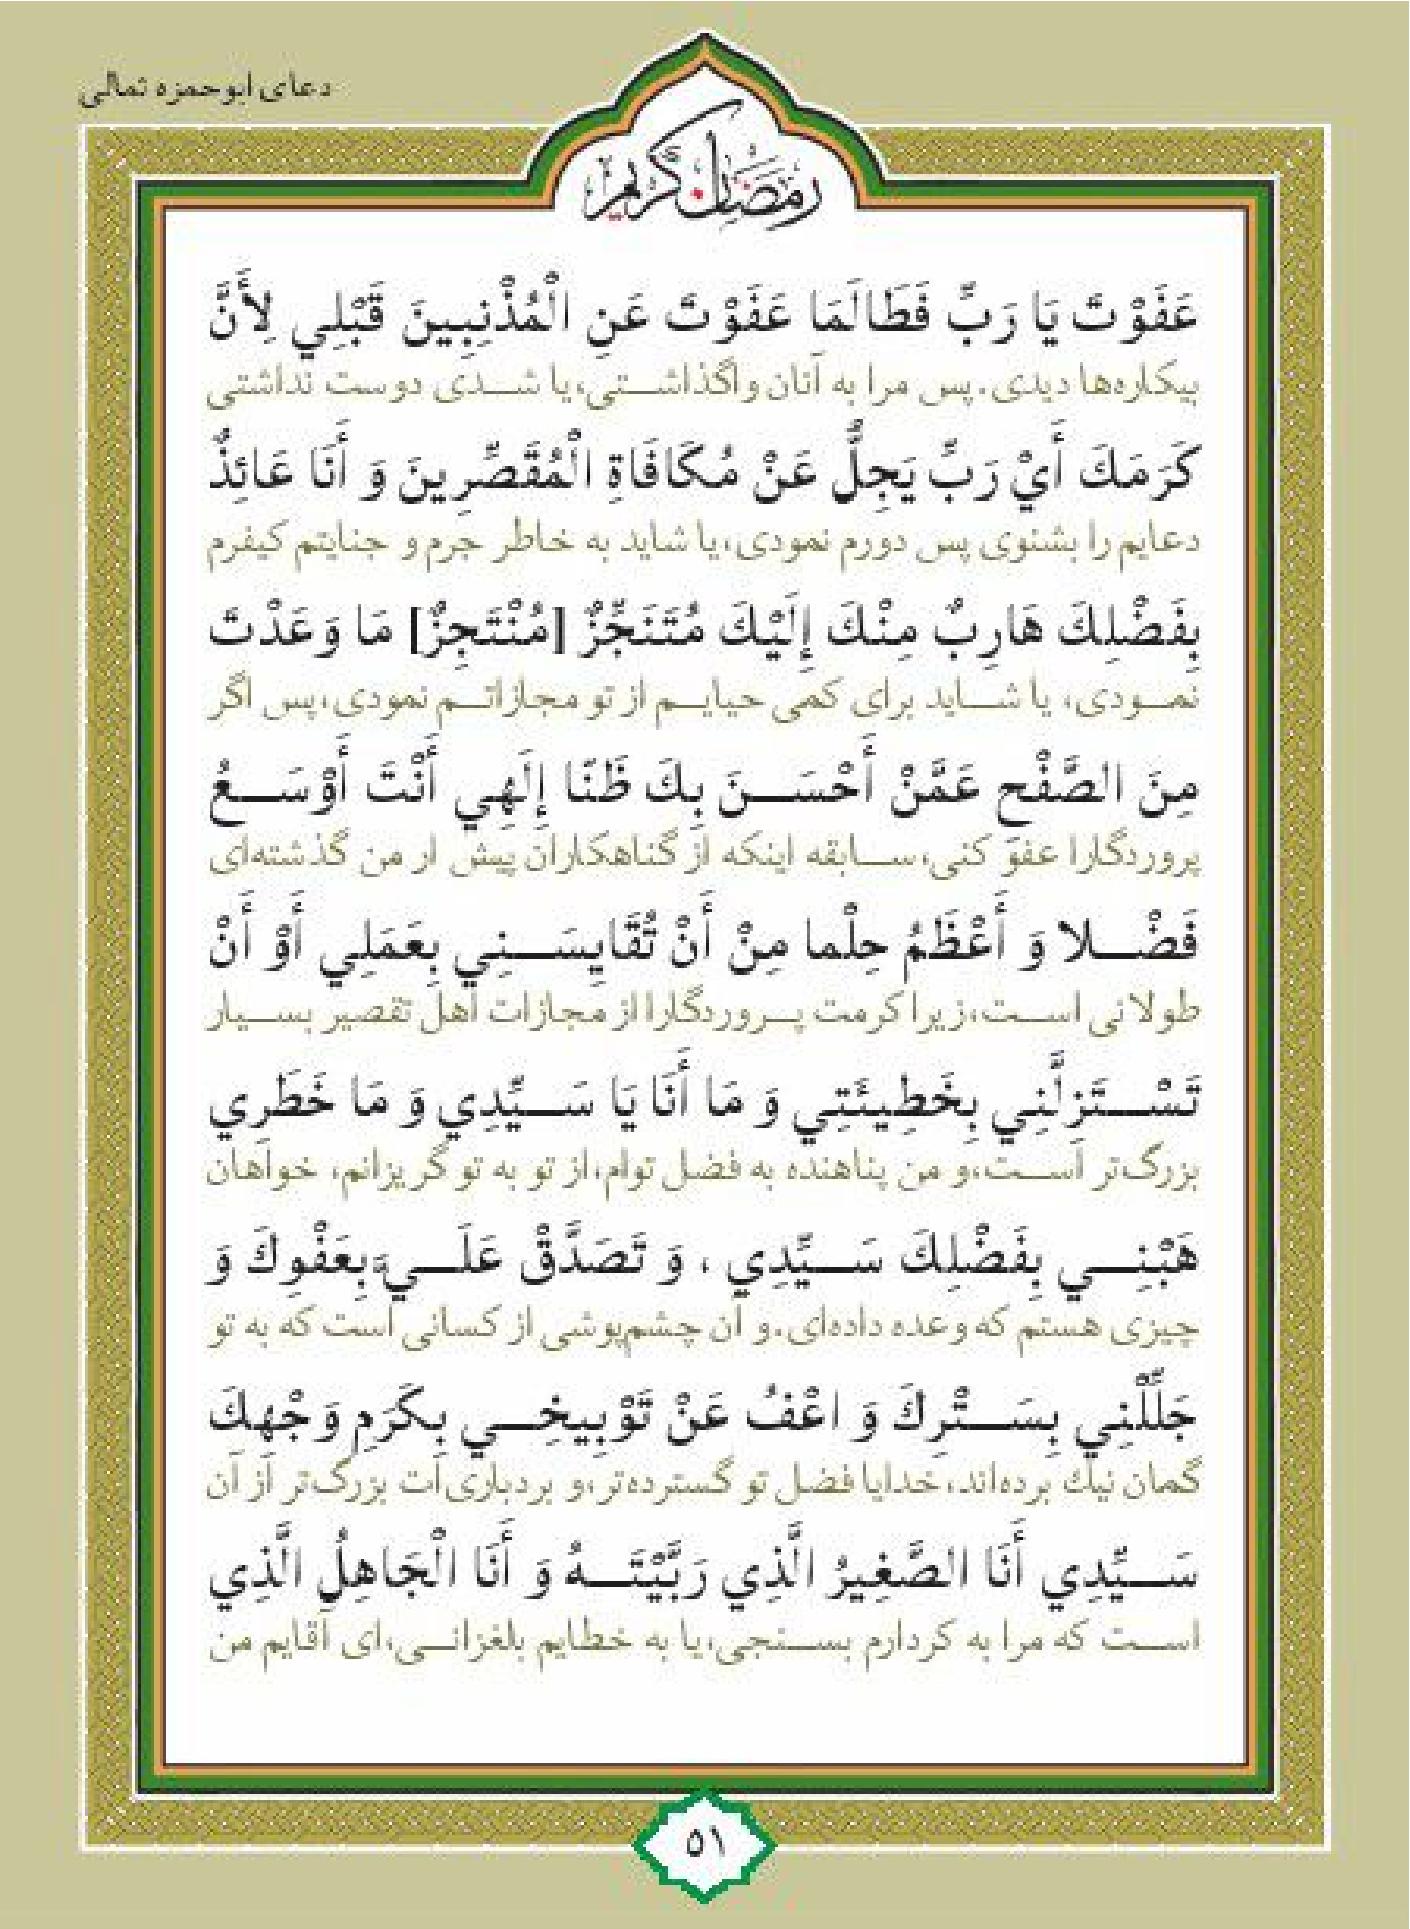 دعای ابوحمزه ثمالی
رمضان كريم
عَفَوْتَ يَا رَبِّ فَطَالَمَا عَفَوْتَ عَنِ الْمُذْنِبِينَ قَبْلِي لِأَنَّ
بیکاره‌ها دیدی. پس مرا به آنان واگذاشتی، یا شدی دوست نداشتی
كَرَمَكَ أَيْ رَبِّ يَجِلُّ عَنْ مُكَافَاةِ الْمُقَصِّرِينَ وَ أَنَا عَائِذٌ
دعایم را بشنوی پس دورم نمودی، یا شاید به خاطر جرم و جنایتم کیفرم
بِفَضْلِكَ هَارِبٌ مِنْكَ إِلَيْكَ مُتَنَجِّزٌ [مُنْتَجِزٌ] مَا وَعَدْتَ
نمودی، یا شاید برای کمی حیایم از تو مجازاتم نمودی، پس اگر
مِنَ الصَّفْحِ عَمَّنْ أَحْسَنَ بِكَ ظَنّا إِلَهِي أَنْتَ أَوْسَعُ
پروردگارا عفو کنی، سابقه اینکه از گناهکاران پیش از من گذشته‌ای
فَضْلا وَ أَعْظَمُ حِلْما مِنْ أَنْ تُقَايِسَنِي بِعَمَلِي أَوْ أَنْ
طولانی است، زیرا کرمت پروردگارا از مجازات اهل تقصیر بسیار
تَسْتَزِلَّنِي بِخَطِيئَتِي وَ مَا أَنَا يَا سَيِّدِي وَ مَا خَطَرِي
بزرگ‌تر است، و من پناهنده به فضل توام، از تو به تو گریزانم، خواهان
هَبْنِي بِفَضْلِكَ سَيِّدِي ، وَ تَصَدَّقْ عَلَيَّ بِعَفْوِكَ وَ
چیزی هستم که وعده داده‌ای. و آن چشم‌پوشی از کسانی است که به تو
جَلِّلْنِي بِسَتْرِكَ وَ اعْفُ عَنْ تَوْبِيخِي بِكَرَمِ وَجْهِكَ
گمان نیك برده‌اند، خدایا فضل تو گسترده‌تر، و بردباری‌ات بزرگ‌تر از آن
سَيِّدِي أَنَا الصَّغِيرُ الَّذِي رَبَّيْتَهُ وَ أَنَا الْجَاهِلُ الَّذِي
است که مرا به کردارم بسنجی، یا به خطایم بلغزانی، ای آقایم من
٥١